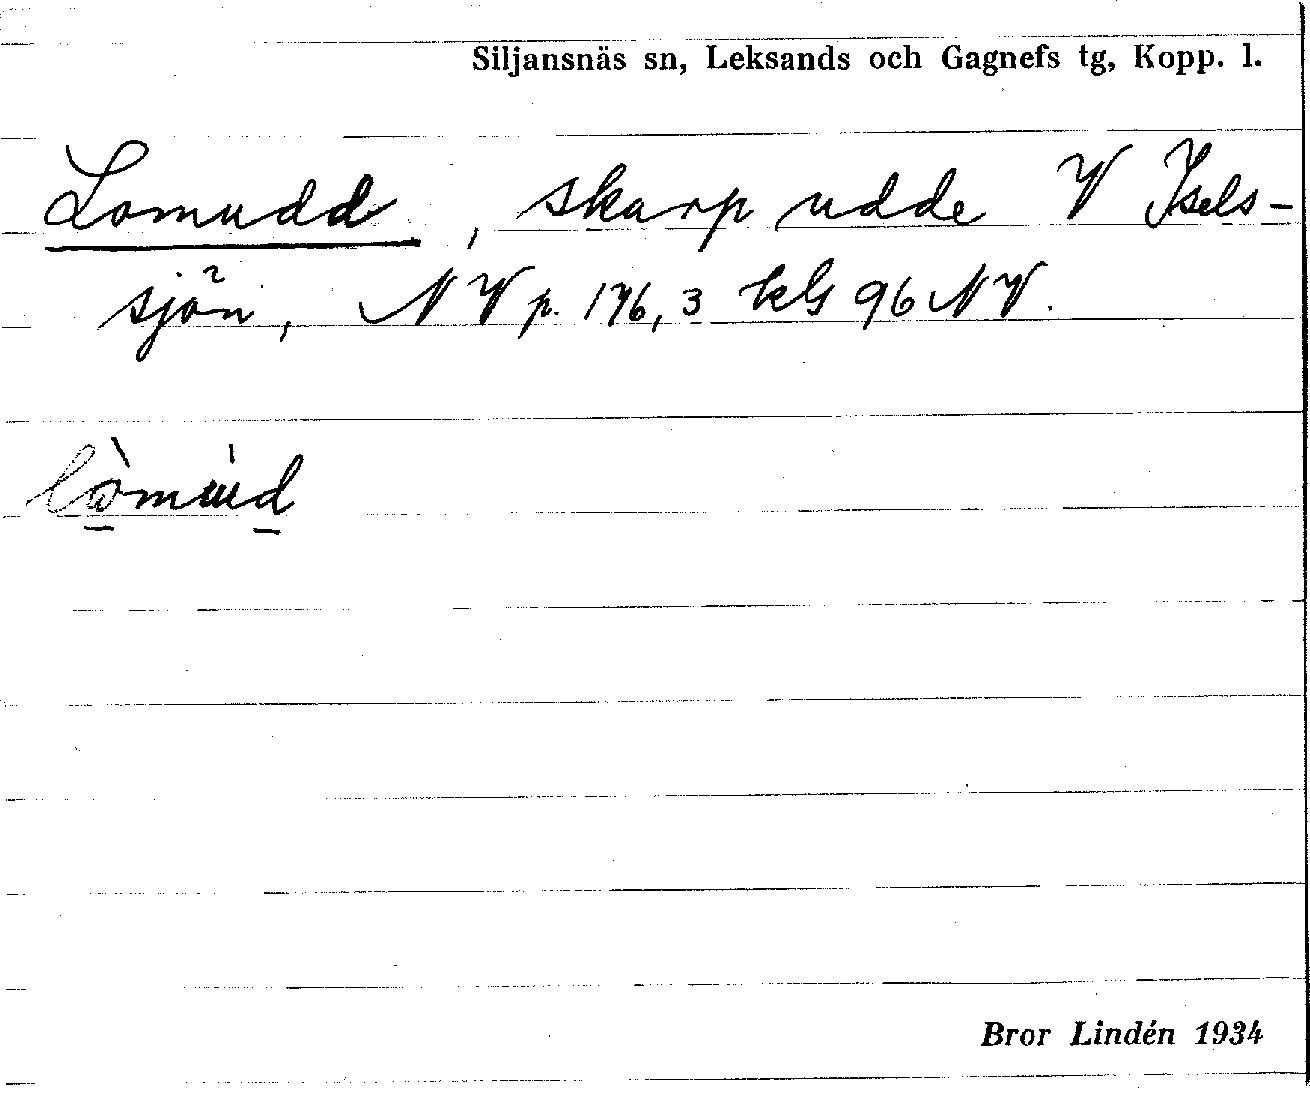 Siljansnäs sn, Leksands och Gagnefs tg, Kopp. l.
Lomudd, skarp udde V Isels-
sjön, NV p. 176,3 kls 96 NV.
Bror Lindén 1934